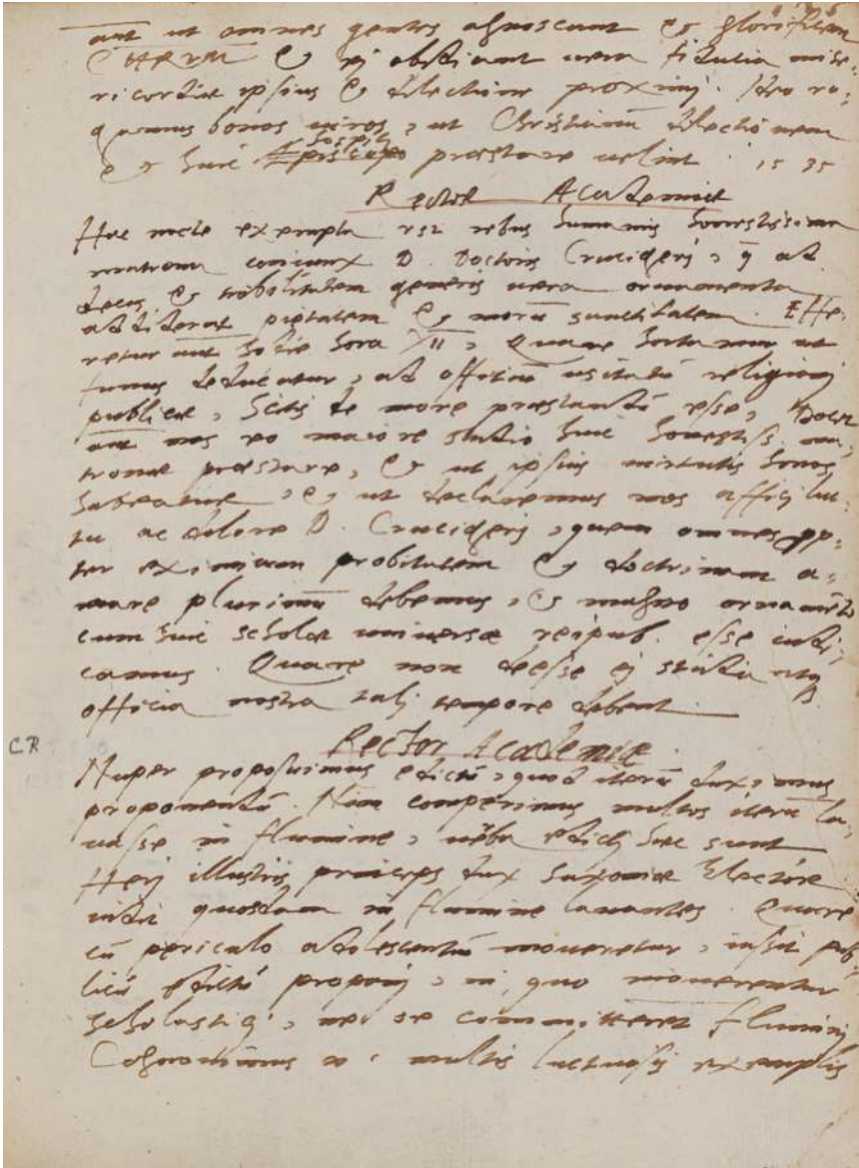 aut ut omnes gentes agnoscant et glorificent
CHRISTUM et ei obediant vera fiducia mise-
ricordiae ipsius et dilectione proximi. Ideo ro-
gamus bonos viros, ut Christianam dilectionem
et huic hospiti praestare velint. 1535
Rector Academiae
Hac nocte exempta est rebus humanis honestissima
matrona coniunx D. Doctoris Crucigeri, q ad
decus et nobilitatem generis vera ornamenta
addiderat pietatem et morū sanctitatem. Effe-
retur aut hodie hora XII, Quare hortamur ut
funus deducatur, ad officiū usitatū religionj
publicae, Scitis de more praestandū esse, Decet
aut nos eo maiore studio huic honestiss. ma-
tronae praestare, et ut ipsius virtutis honos
habeatur, et ut declaremus nos affici luc-
tu ac dolore D. Crucigeri, quem omnes pp-
ter eximiam probitatem et doctrinam a-
mare plurimū debemus, et magno ornamēto
eum huic scholae universae reipub. esse iudi-
camus. Quare non deesse ej studia atq
officia nostra talj tempore debent.
CR
Rector Academiae.
Nuper proposuimus edictū, quod iterū duximus
proponendū. Nam comperimus multos iterū la-
vasse in flumine, verba edictj haec sunt
Herj illustris princeps dux Saxoniae Elector
vidit quosdam in flumine lavantes. Quare
cū periculo adolescentū moveretur, iussit pub-
licū edictū proponj, in quo monerentur
scholasticj, ne se committerent fluminj
Cognovimus n. multis luctuosis exemplis